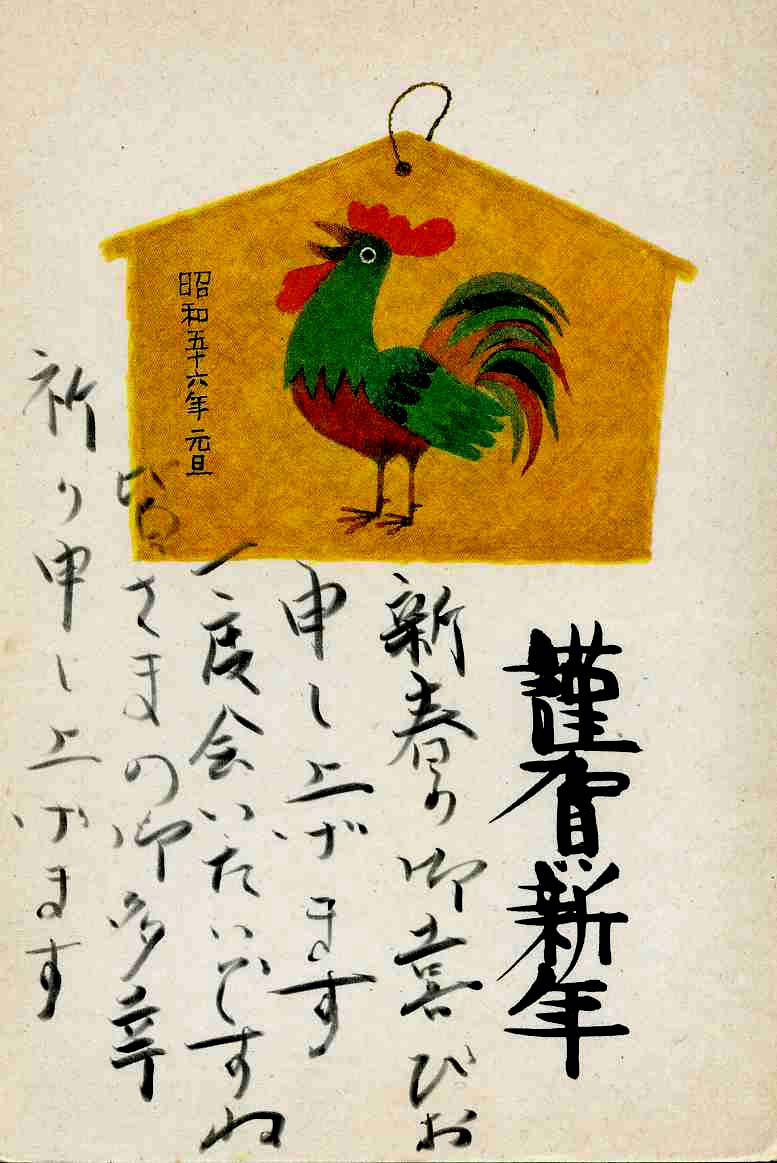 謹賀新年
新春の御喜びお
申し上げます
一度会いたいですね
皆さまの御多幸
祈り申し上げます
昭和五十六年 元旦